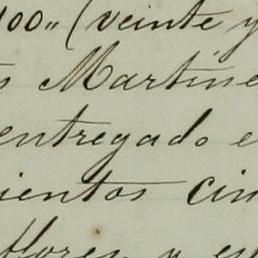 100,, (veinte y
Martine
entregado e
ientos cin
flores y es